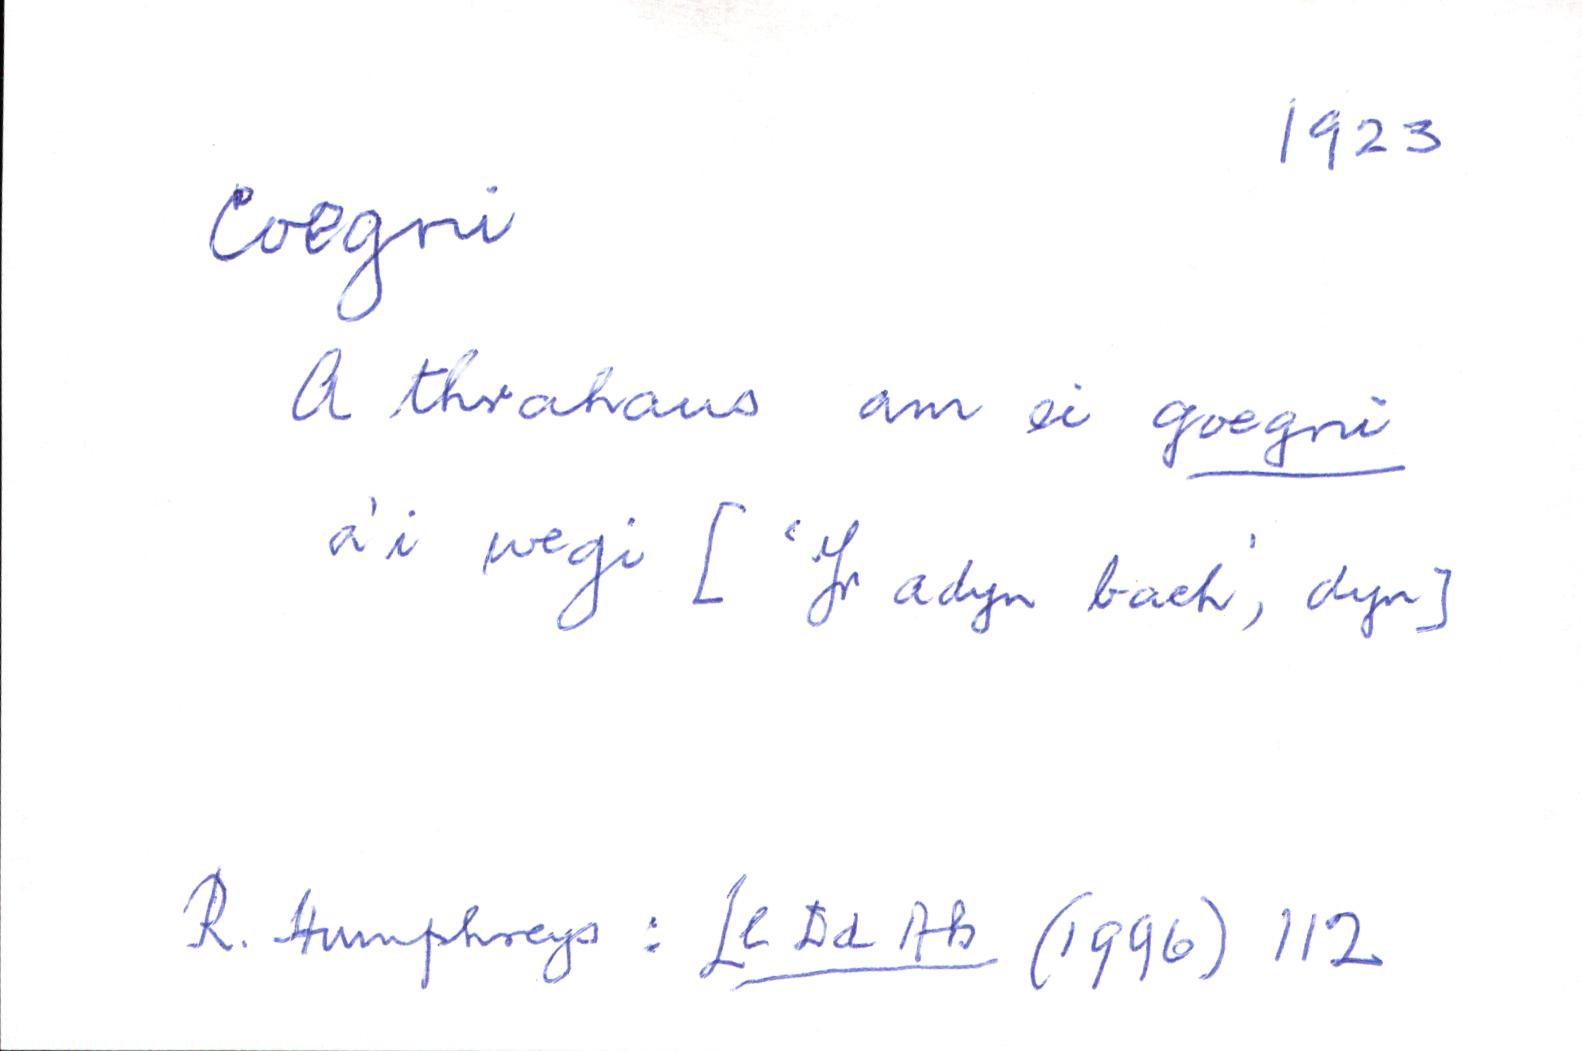 1923
Coegni
A thrahaus am ei goegni
a'i wegi ['Yr adyn bach', dyn]
R. Humphreys: Ll Dd Ab (1996) 112